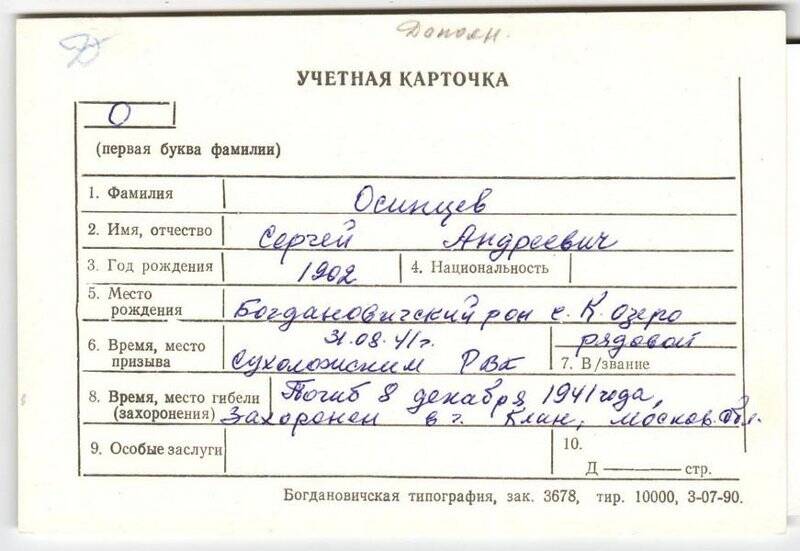 Д
Дополн.
УЧЕТНАЯ КАРТОЧКА
О
(первая буква фамилии)
1. Фамилия Осинцев
2. Имя, отчество Сергей Андреевич
3. Год рождения 1902 4. Национальность
5. Место рождения Богдановичский рон с. К. Озеро
6. Время, место призыва 31.08.41г. Сухоложским РВК
рядовой
7. В/звание
8. Время, место гибели (захоронения) Погиб 8 декабря 1941 года,
Захоронен в г. Клин, Москов. обл.
9. Особые заслуги
10.
Д — стр.
Богдановичская типография, зак. 3678, тир. 10000, 3-07-90.